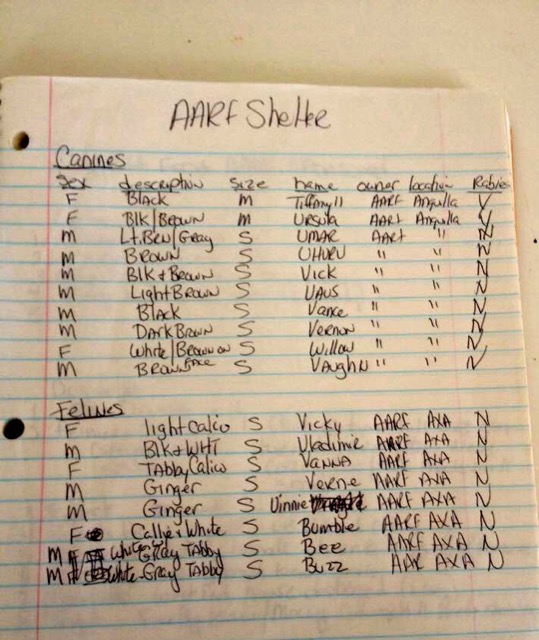 AARF Shelter
Canines
Sex description Size name owner location Rabies
F Black M Tiffany11 AARF Anguilla √
F Blk/Brown M Ursula AARF Anguilla √
M Lt.Brn/Gray S UMAR AARF " N
M BROWN S UHURU " " N
M Blk & Brown S Vick " " N
M Light Brown S VAUS " " N
M Black S Vance " " N
M Dark Brown S Vernon " " N
F White/Brown on Face S Willow " " N
M BROWN S VAUGHN " " N
Felines
F light Calico S Vicky AARF AXA N
M Blk & WHT S Vladimie AARF AXA N
F TABBY, Calico S VANNA AARF AXA N
M Ginger S Verne AARF AXA N
M Ginger S Vinnie AARF AXA N
F White S Bumble AARF AXA N
M White Gray TABBY S Bee AARF AXA N
M White-Gray TABBY S Buzz AAR AXA N